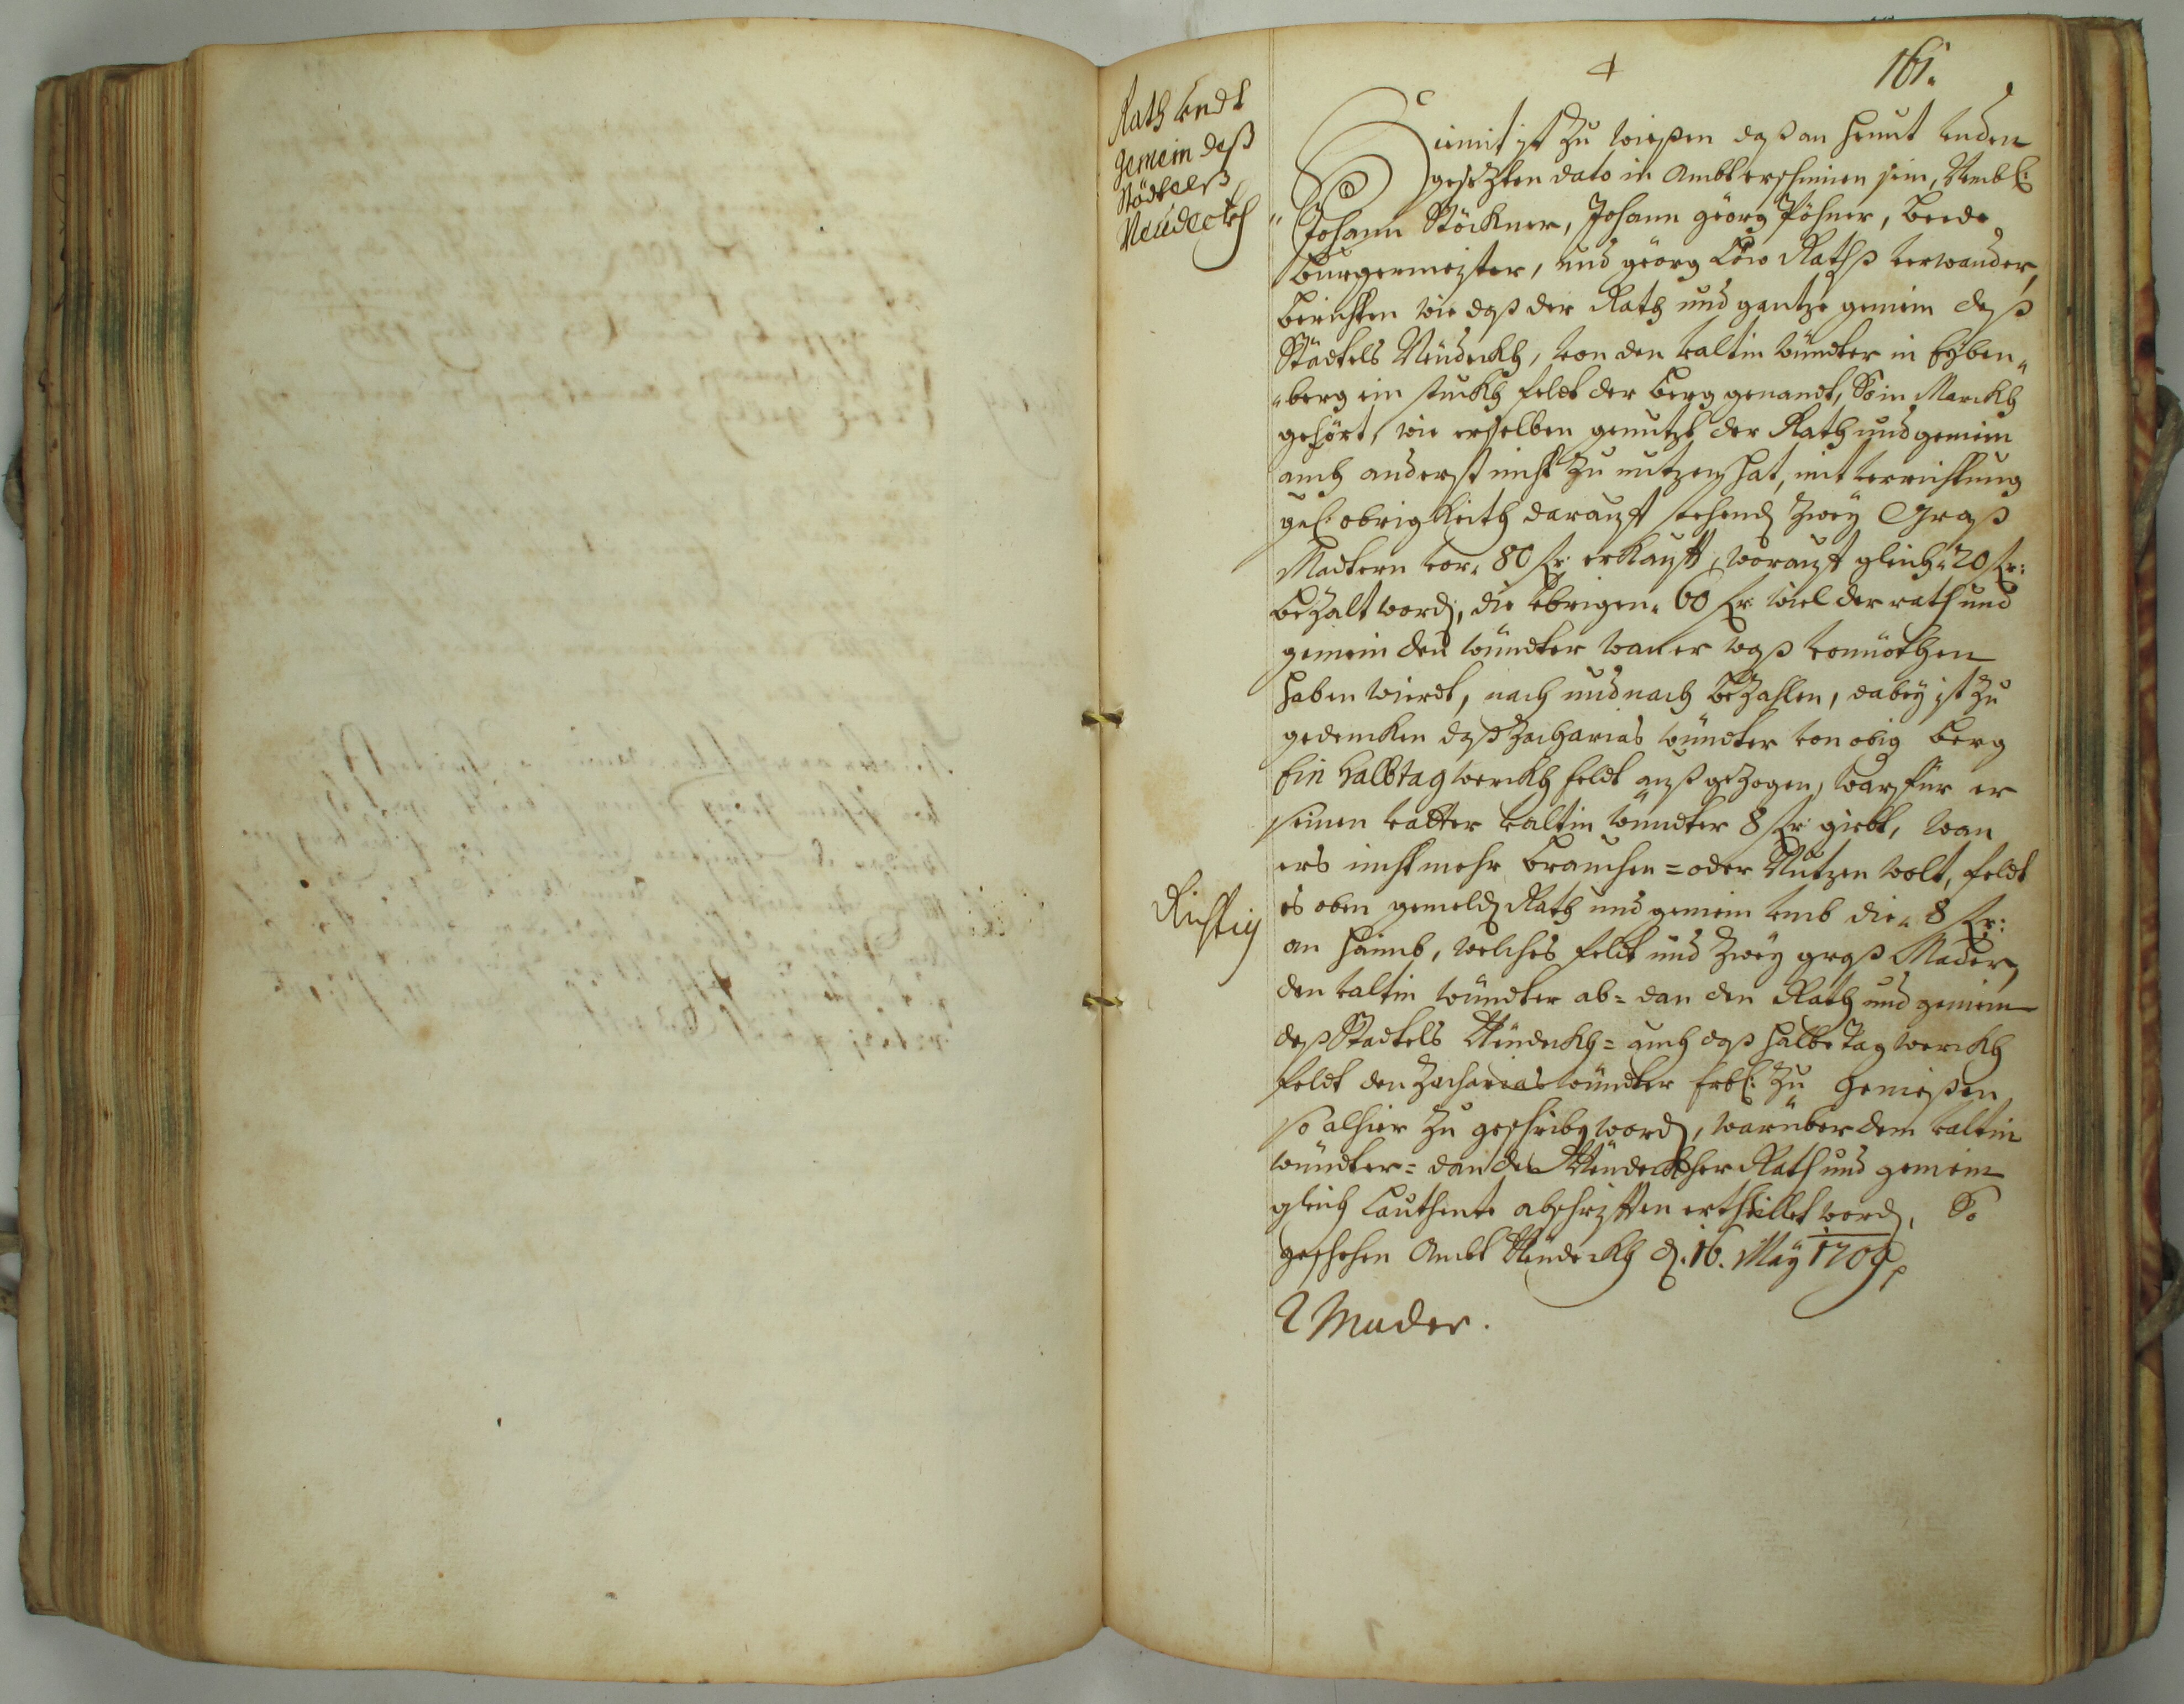 161.
Rath undt
gemein deß
Stödtelß
Neüdeckh
Hiemit ist zu wießen daß an heunt unden
gesezten dato in Ambt erschinnen sein, Nembl:
Johann Stöckner, Johann görg Pöhner, beede
burgermeister, und georg Löw Rathß verwander,
berichten wie daß der Rath und gantze gemein deß
Städtels Neüdeckh, von den valtin Wündter in Eÿben-
-berg ein stuckh feldt der berg genandt, So in Marckh
gehört, wie erselben genutzt der Rath und gemein
auch anderst nicht zu nutzen hat, mit verrichtung
gel: obrigkeith darauff stehend zweÿ Graß
Madtern vor. 80 fr: erkaufft, worauff gleich 20 fr:
bezalt word, die übrigen. 60 fr: wiel der rath und
gemein den Wündter wan er waß vonnöthen
haben wierdt, nach und nach bezahlen, dabeÿ ist zu
gedencken daß Zacharias Wündter von obig berg
Ein halb tag werckh feldt auß gezogen, warfür er
seinen vatter valtin Wündter 8 fr: giebt, wan
ers nicht mehr brauchen = oder Nutzen wolt, feldt
es oben gemeld Rath und gemein umb die. 8 fr:
Richtig
an haimb, welches feldt und zweÿ graß Mader,
den valtin Wündter ab = dan den Rath und gemein
deß Stadtels Neüdeckh = auch daß halbe tag werckh
feldt den Zacharias Wündter Erbl: zu genießen
so alhier zu geschriben word, warüber dem valtin
Wündter = dan den Neüdeckher Rath und gemein
gleich Lauthente abschrifften ertheillet word, So
geschehen Ambt Neüdeckh d. 16. Maÿ 1709
Mader.